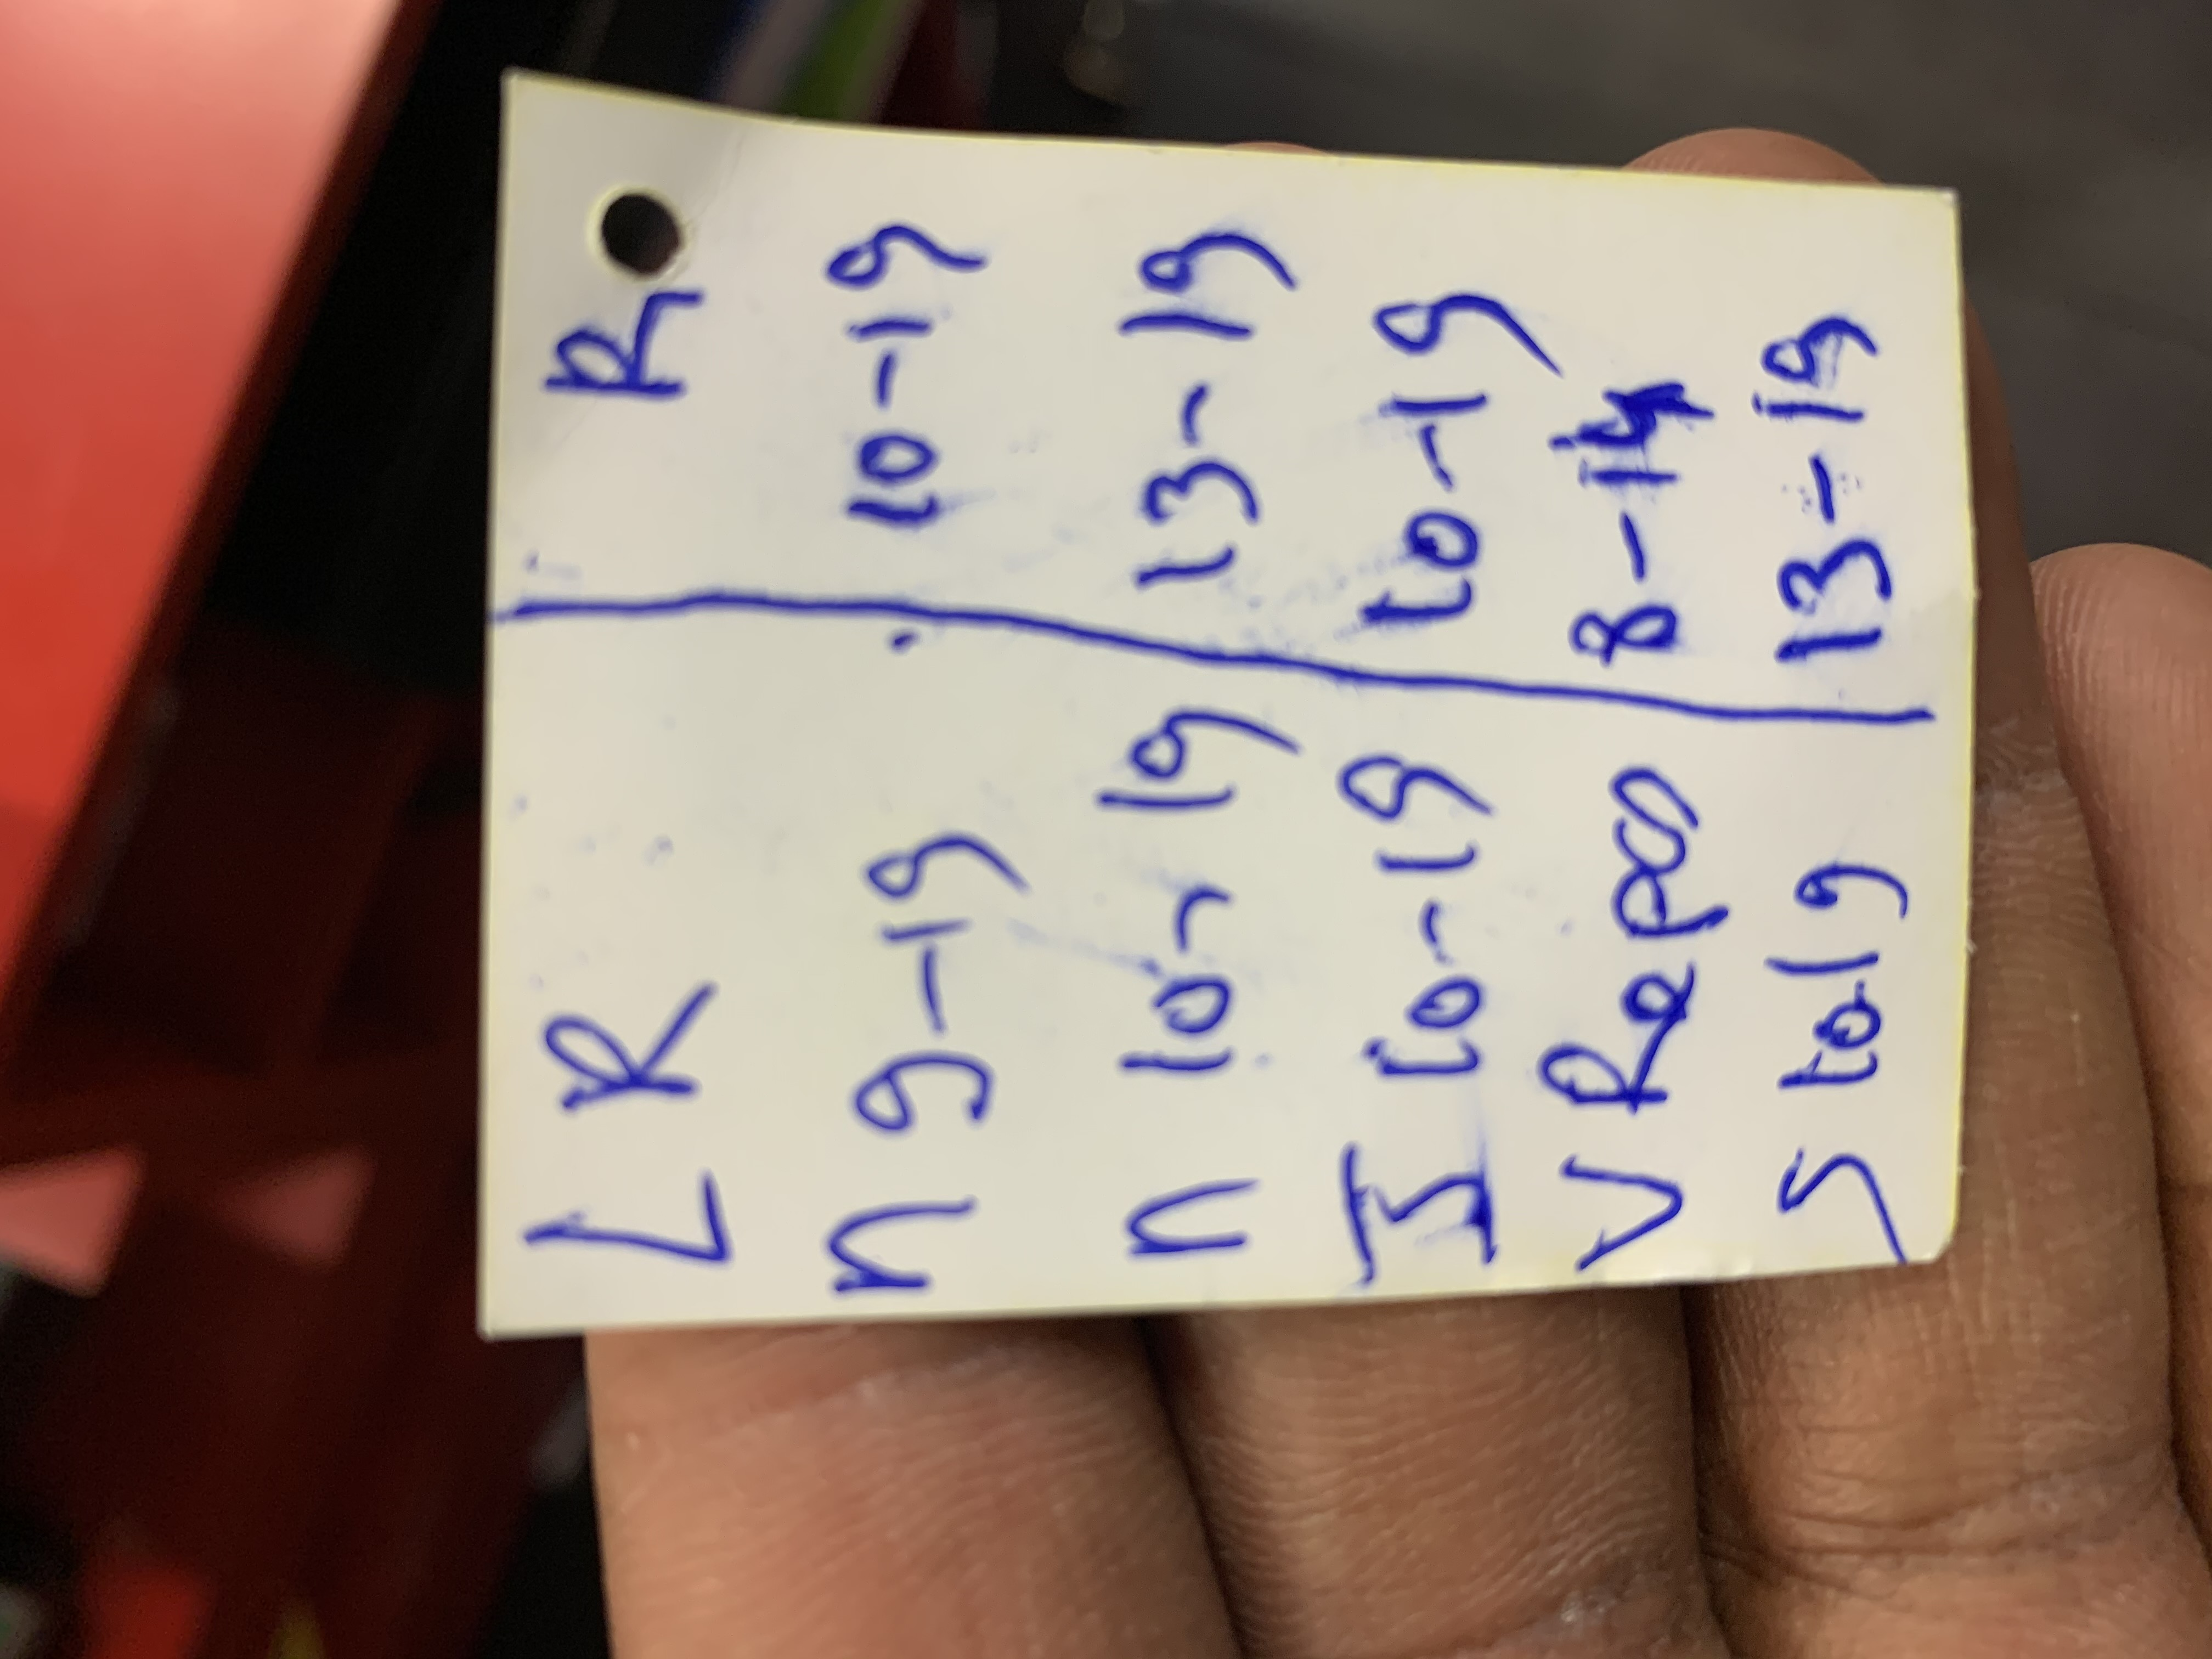 L R R
n 9-19 10-19
n 10-19 13-19
J 10-19 10-19
V Repos 8-14
S 10 19 13-19